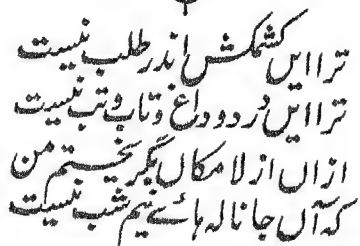 ترا ایں کشمکش اندر طلب نیست
ترا ایں درد و داغ و تاب و تب نیست
ازاں از لامکاں بگریختم من
کہ آں جا نالہ ہائے نیم شب نیست